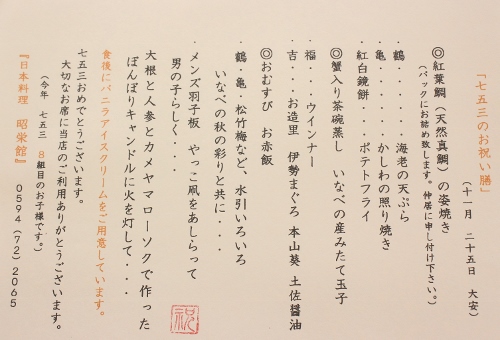 「七五三のお祝い膳」
(十一月 二十五日 大安)
◎紅葉鯛(天然真鯛)の姿焼き
(パックにお詰め致します。仲居に申し付け下さい。)
・鶴・・・・・・海老の天ぷら
・亀・・・・・・かしわの照り焼き
・紅白鏡餅・・・ポテトフライ
◎蟹入り茶碗蒸し いなべの産みたて玉子
・福・・・ウインナー
・吉・・・お造里 伊勢まぐろ 本山葵 土佐醤油
◎おむすび お赤飯
・鶴・亀・松竹梅など、水引いろいろ
いなべの秋の彩りと共に・・・
・メンズ羽子板 やっこ凧をあしらって
男の子らしく・・・
大根と人参とカメヤマローソクで作った
ぼんぼりキャンドルに火を灯して・・・
祝
食後にバニラアイスクリームをご用意しています。
七五三おめでとうございます。
大切なお席に当店のご利用ありがとうございます。
(今年 七五三 8組目のお子様です。)
『日本料理 昭栄館』 0594(72)2065